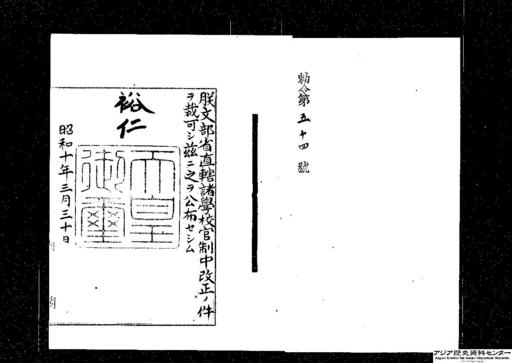 勅令第五十四號
朕文部省直轄諸學校官制中改正ノ件
ヲ裁可シ茲ニ之ヲ公布セシム
裕仁
天皇御璽
昭和十年三月三十日
アジア歴史資料センター
Japan Center for Asian Historical Records